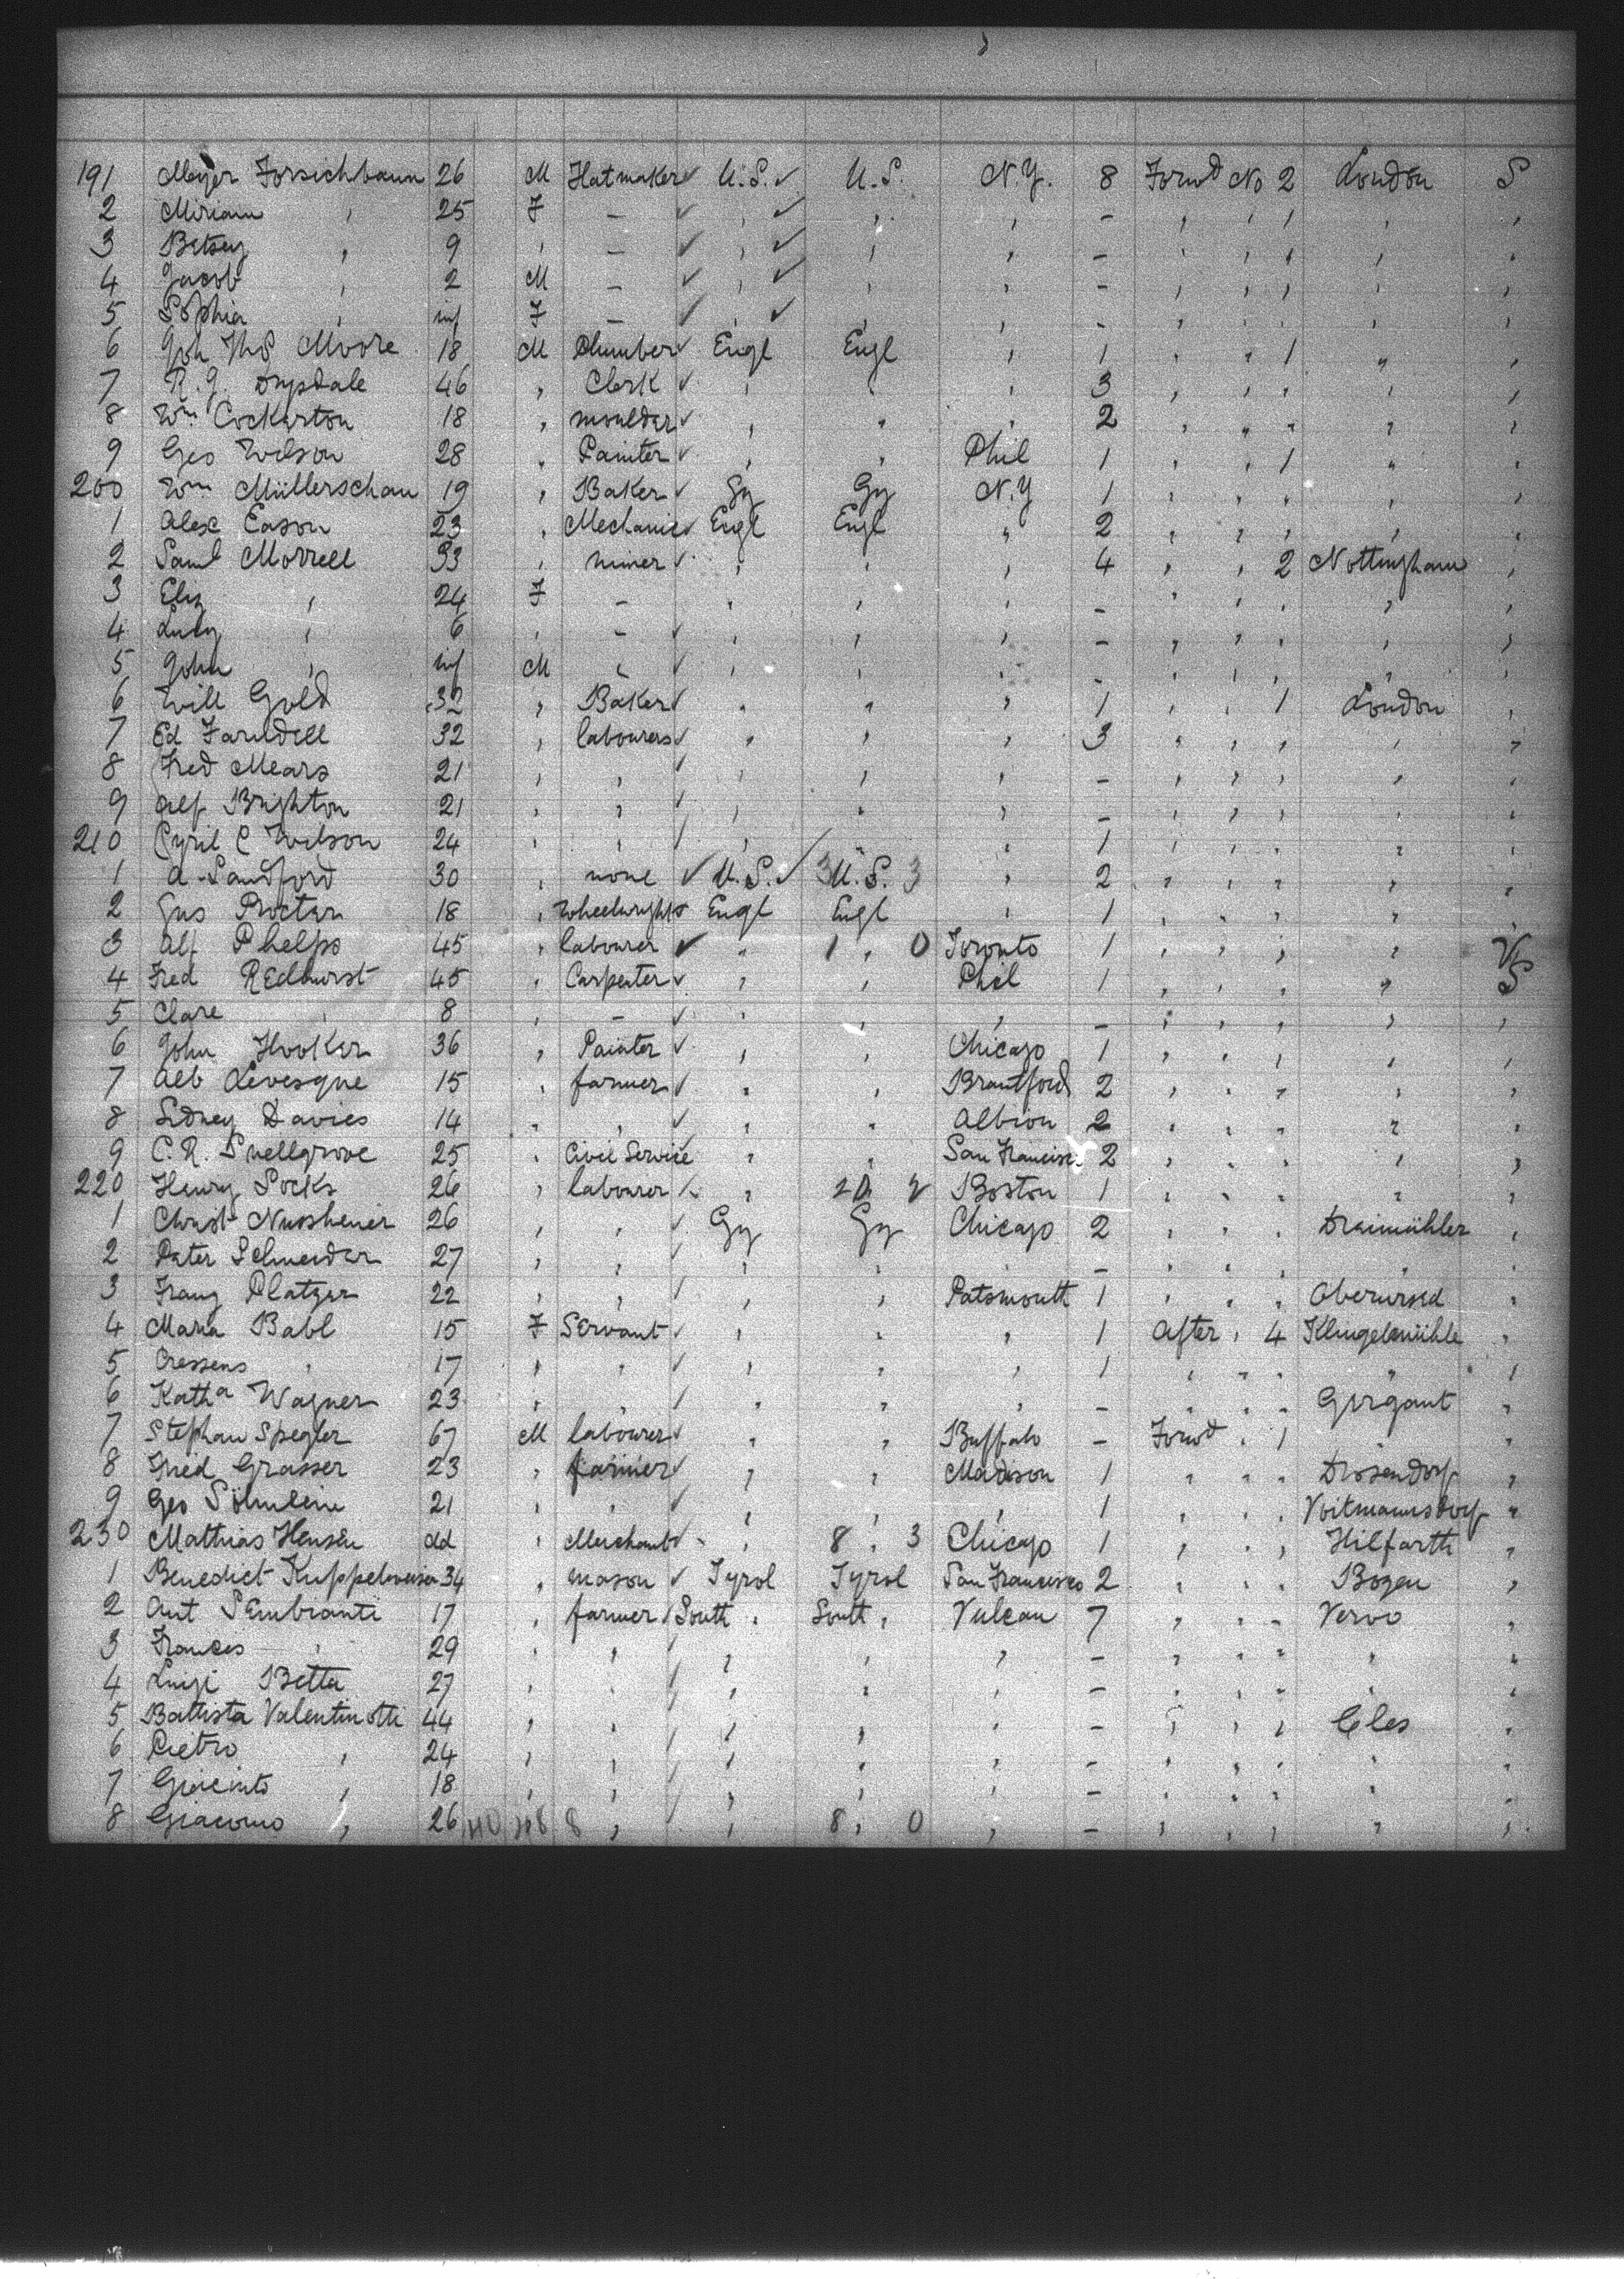 191 Meyer Forsichbaum 26 M Hatmaker ✓ U.S. ✓ U.S. N.Y. 8 Forwd No 2 London S
2 Miriam " 25 F – ✓ " ✓ " " – " " 1 " "
3 Betsey " 9 " – ✓ " ✓ " " – " " " " "
4 Jacob " 2 M – ✓ " ✓ " " – " " " " "
5 Sophia " inf F – ✓ " ✓ " " – " " " " "
6 Joh Ths Moore 18 M Plumber ✓ Engl Engl " 1 " " 1 " "
7 R.G. Drysdale 46 " Clerk ✓ " " " 3 " " " " "
8 Wm Cockerton 18 " moulder ✓ " " " 2 " " " " "
9 Geo Wilson 28 " Painter ✓ " " Phil 1 " " 1 " "
200 Wm Müllerschau 19 " Baker ✓ Gy Gy N.Y 1 " " " " "
1 Alex Eason 23 " Mechanic Engl Engl " 2 " " " " "
2 Saml Morrell 33 " miner ✓ " " " 4 " " 2 Nottingham "
3 Eliz " 24 F – " " " – " " " " "
4 Lucy " 6 " – ✓ " " " – " " " " "
5 John " inf M " ✓ " " " – " " " " "
6 Will Gold 32 " Baker ✓ " " " 1 " " 1 London "
7 Ed Farndell 32 " labourers ✓ " " " 3 " " " " "
8 Fred Mears 21 " " ✓ " " " – " " " " "
9 Alf Brighton 21 " " ✓ " " " – " " " " "
210 Cyril C Wilson 24 " " / " " " 1 " " " " "
1 A. Sandford 30 " none ✓ U.S. ✓ 3 U.S. 3 " 2 " " " " "
2 Gus Procter 18 " Wheelwright Engl Engl " 1 " " " " "
3 Alf Phelps 45 " labourer ✓ " 1 " 0 Toronto 1 " " " " V
4 Fred Redhurst 45 " Carpenter ✓ " " Phil 1 " " " " S
5 Clare " 8 " – ✓ " " " – " " " " "
6 John Hooker 36 " Painter ✓ " " Chicago 1 " " " " "
7 Alb Levesque 15 " farmer ✓ " " Brantford 2 " " " " "
8 Sidney Davies 14 " " ✓ " " Albion 2 " " " " "
9 C.R. Snellgrove 25 " Civil Service " " San Francisc. 2 " " " " "
220 Henry Socks 26 " labourer " Boston 1 " " " " "
1 Christ Nussheuer 26 " " ✓ Gy Gy Chicago 2 " " " Draimühler "
2 Peter Schneider 27 " " ✓ " " " – " " " " "
3 Franz Platzer 22 " " / " " Patsmouth 1 " " " Oberursel "
4 Maria Babl 15 F Servant ✓ " " " 1 After " 4 Klingelmühle "
5 Cressens " 17 " " ✓ " " " 1 " " " " "
6 Katha Wagner 23 " " / " " " – " " " Gergant "
7 Stephan Spegler 67 M labourer ✓ " " Buffalo – Forwd " 1 " "
8 Fried Grasser 23 " farmer ✓ " " Madison 1 " " " Drosendorf "
9 Geo Söhnlein 21 " " ✓ " " " 1 " " " Voitmannsdorf "
230 Mathias Hensen dd " Merchant ✓ " 8 " 3 Chicago 1 " " " Hilfarth "
1 Benedict Kuppelwieser 34 " mason ✓ Tyrol Tyrol San Francisco 2 " " " Bozen "
2 Ant Sembranti 17 " farmer / South " South " Vulcan 7 " " " Vervo "
3 Frances " 29 " " / " " " – " " " " "
4 Luigi Betta 27 " " / " " " – " " " " "
5 Battista Valentinotti 44 " " / " " " – " " " Cles "
6 Pietro " 24 " " / " " " – " " " " "
7 Giacinto " 18 " " / " " " – " " " " "
8 Giacomo " 26 8 " / " 8 " 0 " – " " " " "